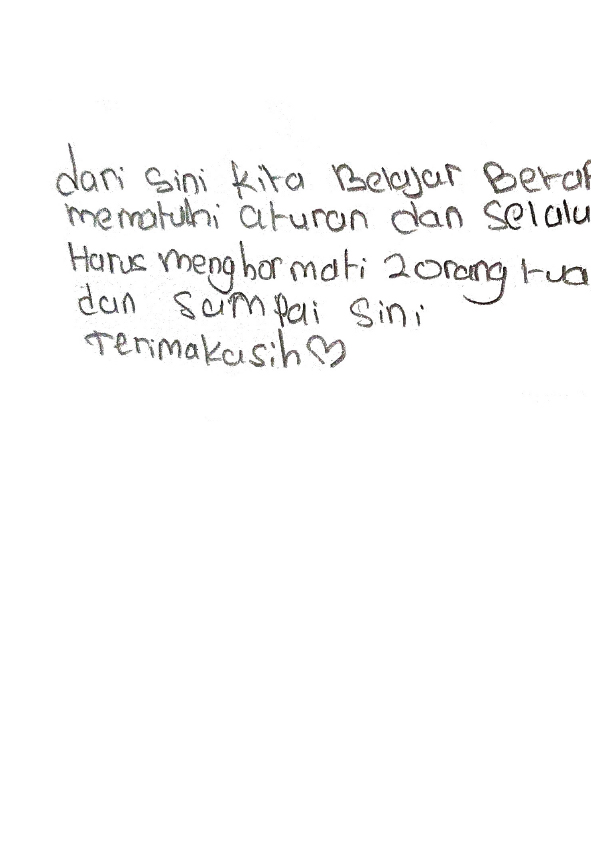 dari sini kita Belajar
mematuhi aturan dan Selalu
Harus menghormati 2orang tua
dan sampai sini
Terimakasih♡